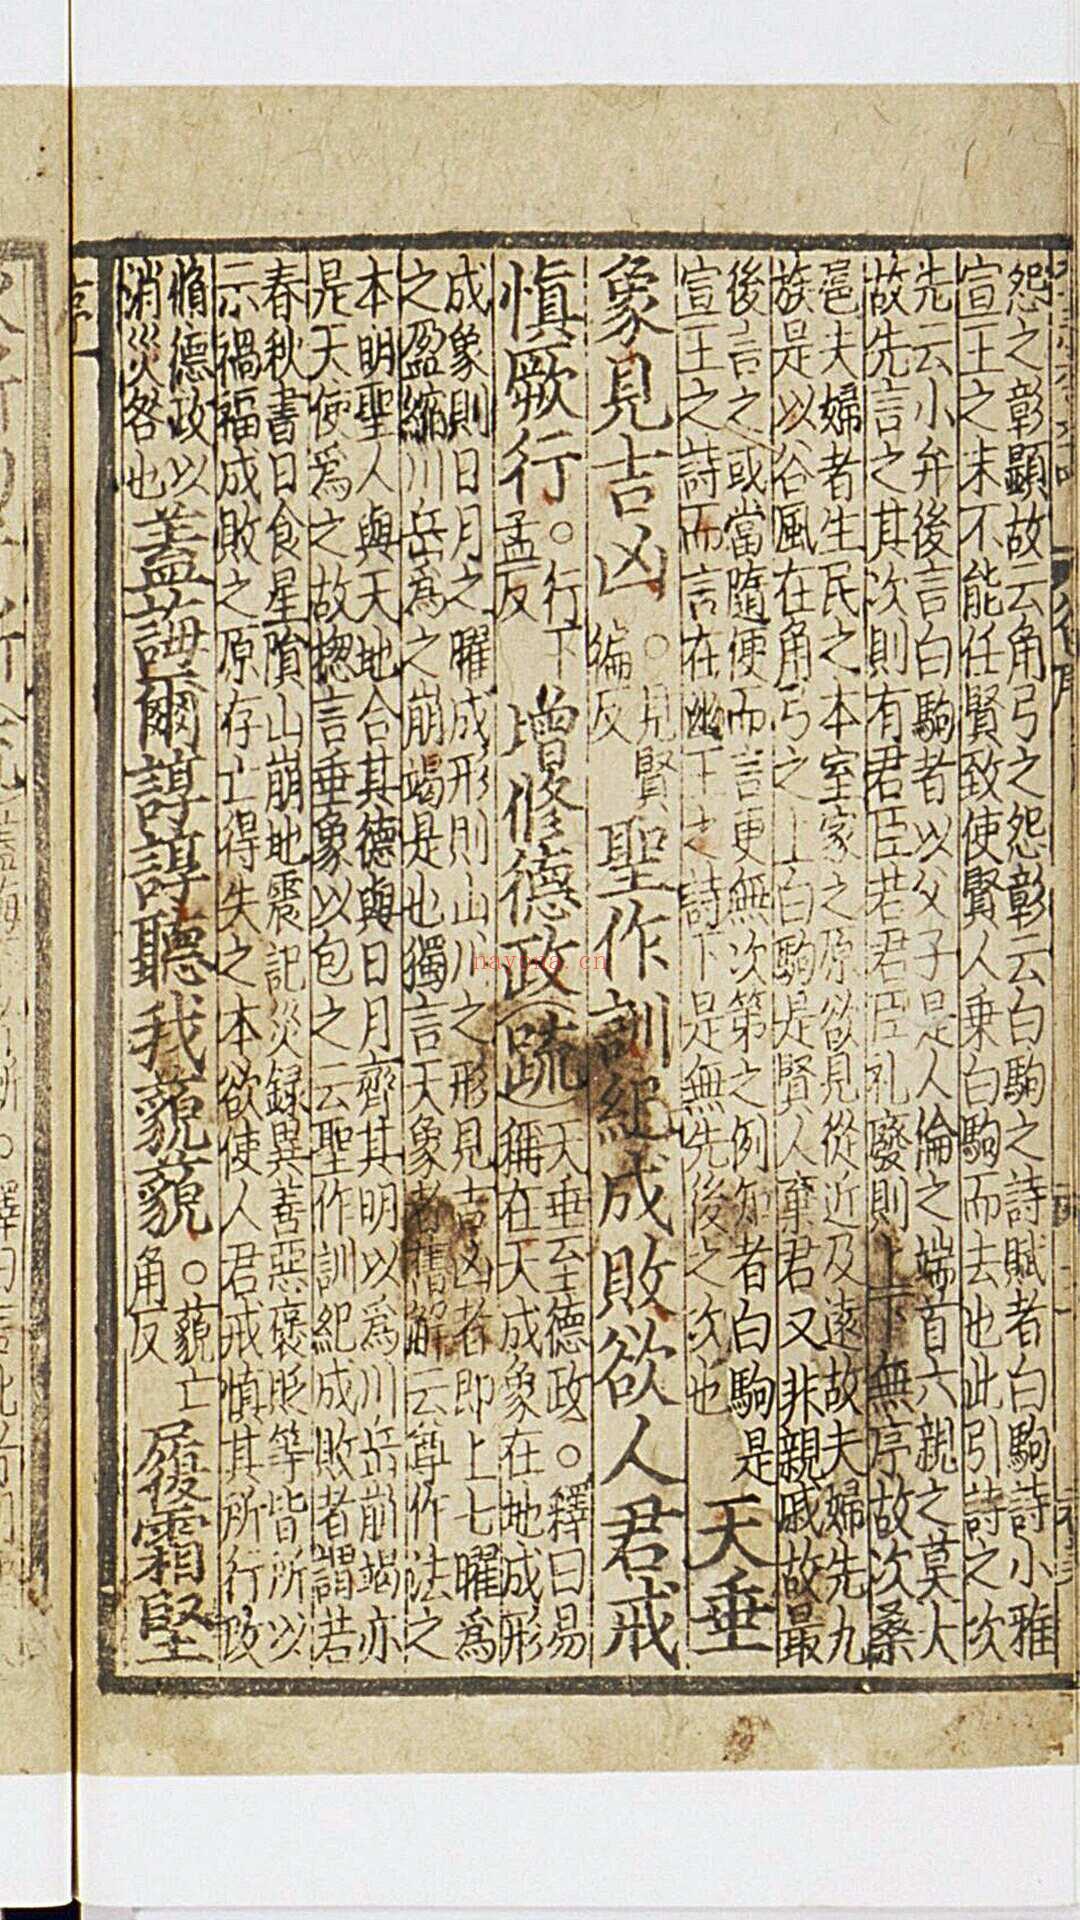 怨之彰顯故云角弓之怨彰云白駒之詩賦者白駒詩小雅
宣王之末不能任賢致使賢人乗白駒而去也此引詩之次
先云小弁後言白駒者以父子是人倫之端首六親之莫大
故先言之其次則有君臣若君臣礼廢則上下無序故次桑
扈夫婦者生民之本室家之原欲見從近及遠故夫婦先九
族是以谷風在角弓之上白駒是賢人棄君又非親戚故最
後言之或當隨便而言更無次第之例知者白駒是
宣王之詩而言在幽王之詩下是無先後之次也
天垂
象見吉凶
○見賢
徧反
聖作訓紀成敗欲人君戒
慎厥行
○行下
孟反
增修德政
疏
天垂至德政○釋曰易
稱在天成象在地成形
成象則日月之曜成形則山川之形見吉凶者即上七曜爲
之盈縮川岳為之崩竭是也獨言天象者舊解云尊作法之
本明聖人與天地合其德與日月齊其明以爲川岳崩竭亦
是天使爲之故揔言垂象以包之云聖作訓紀成敗者謂若
春秋書日食星隕山崩地震記災録異善惡褒貶等皆所以
示禍福成敗之原存亡得失之本欲使人君戒慎其所行政
脩德政以
消災咎也
蓋誨爾諄諄聽我藐藐
○藐亡
角反
履霜堅
nayona.cn